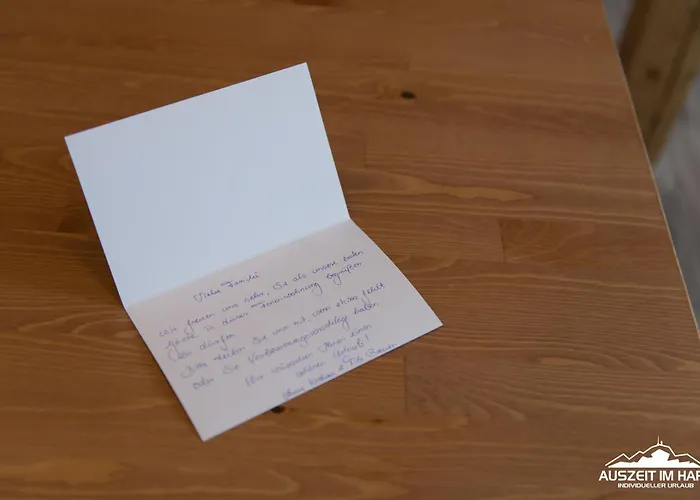 Liebe Familie
wir freuen uns sehr, Sie als unsere ersten
Gäste in dieser Ferienwohnung begrüßen
zu dürfen.
Bitte teilen Sie uns mit, wenn etwas fehlt
oder Sie Verbesserungsvorschläge haben
Wir wünschen Ihnen einen
schönen Urlaub!
AUSZEIT IM HAR
INDIVIDUELLER URLAUB